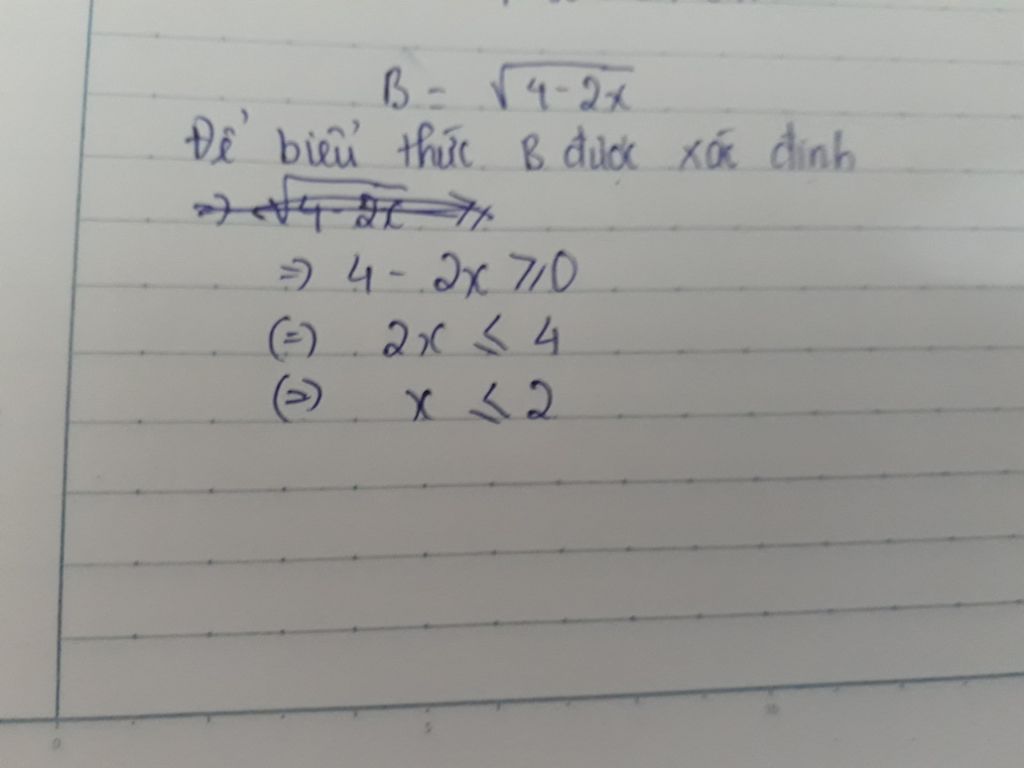 B = √4-2x
Để biểu thức B được xác định
⇒ √4-2x
⇒ 4 - 2x ⩾0
(=) 2x ≤ 4
(⇒) x ≤ 2
0 5 10